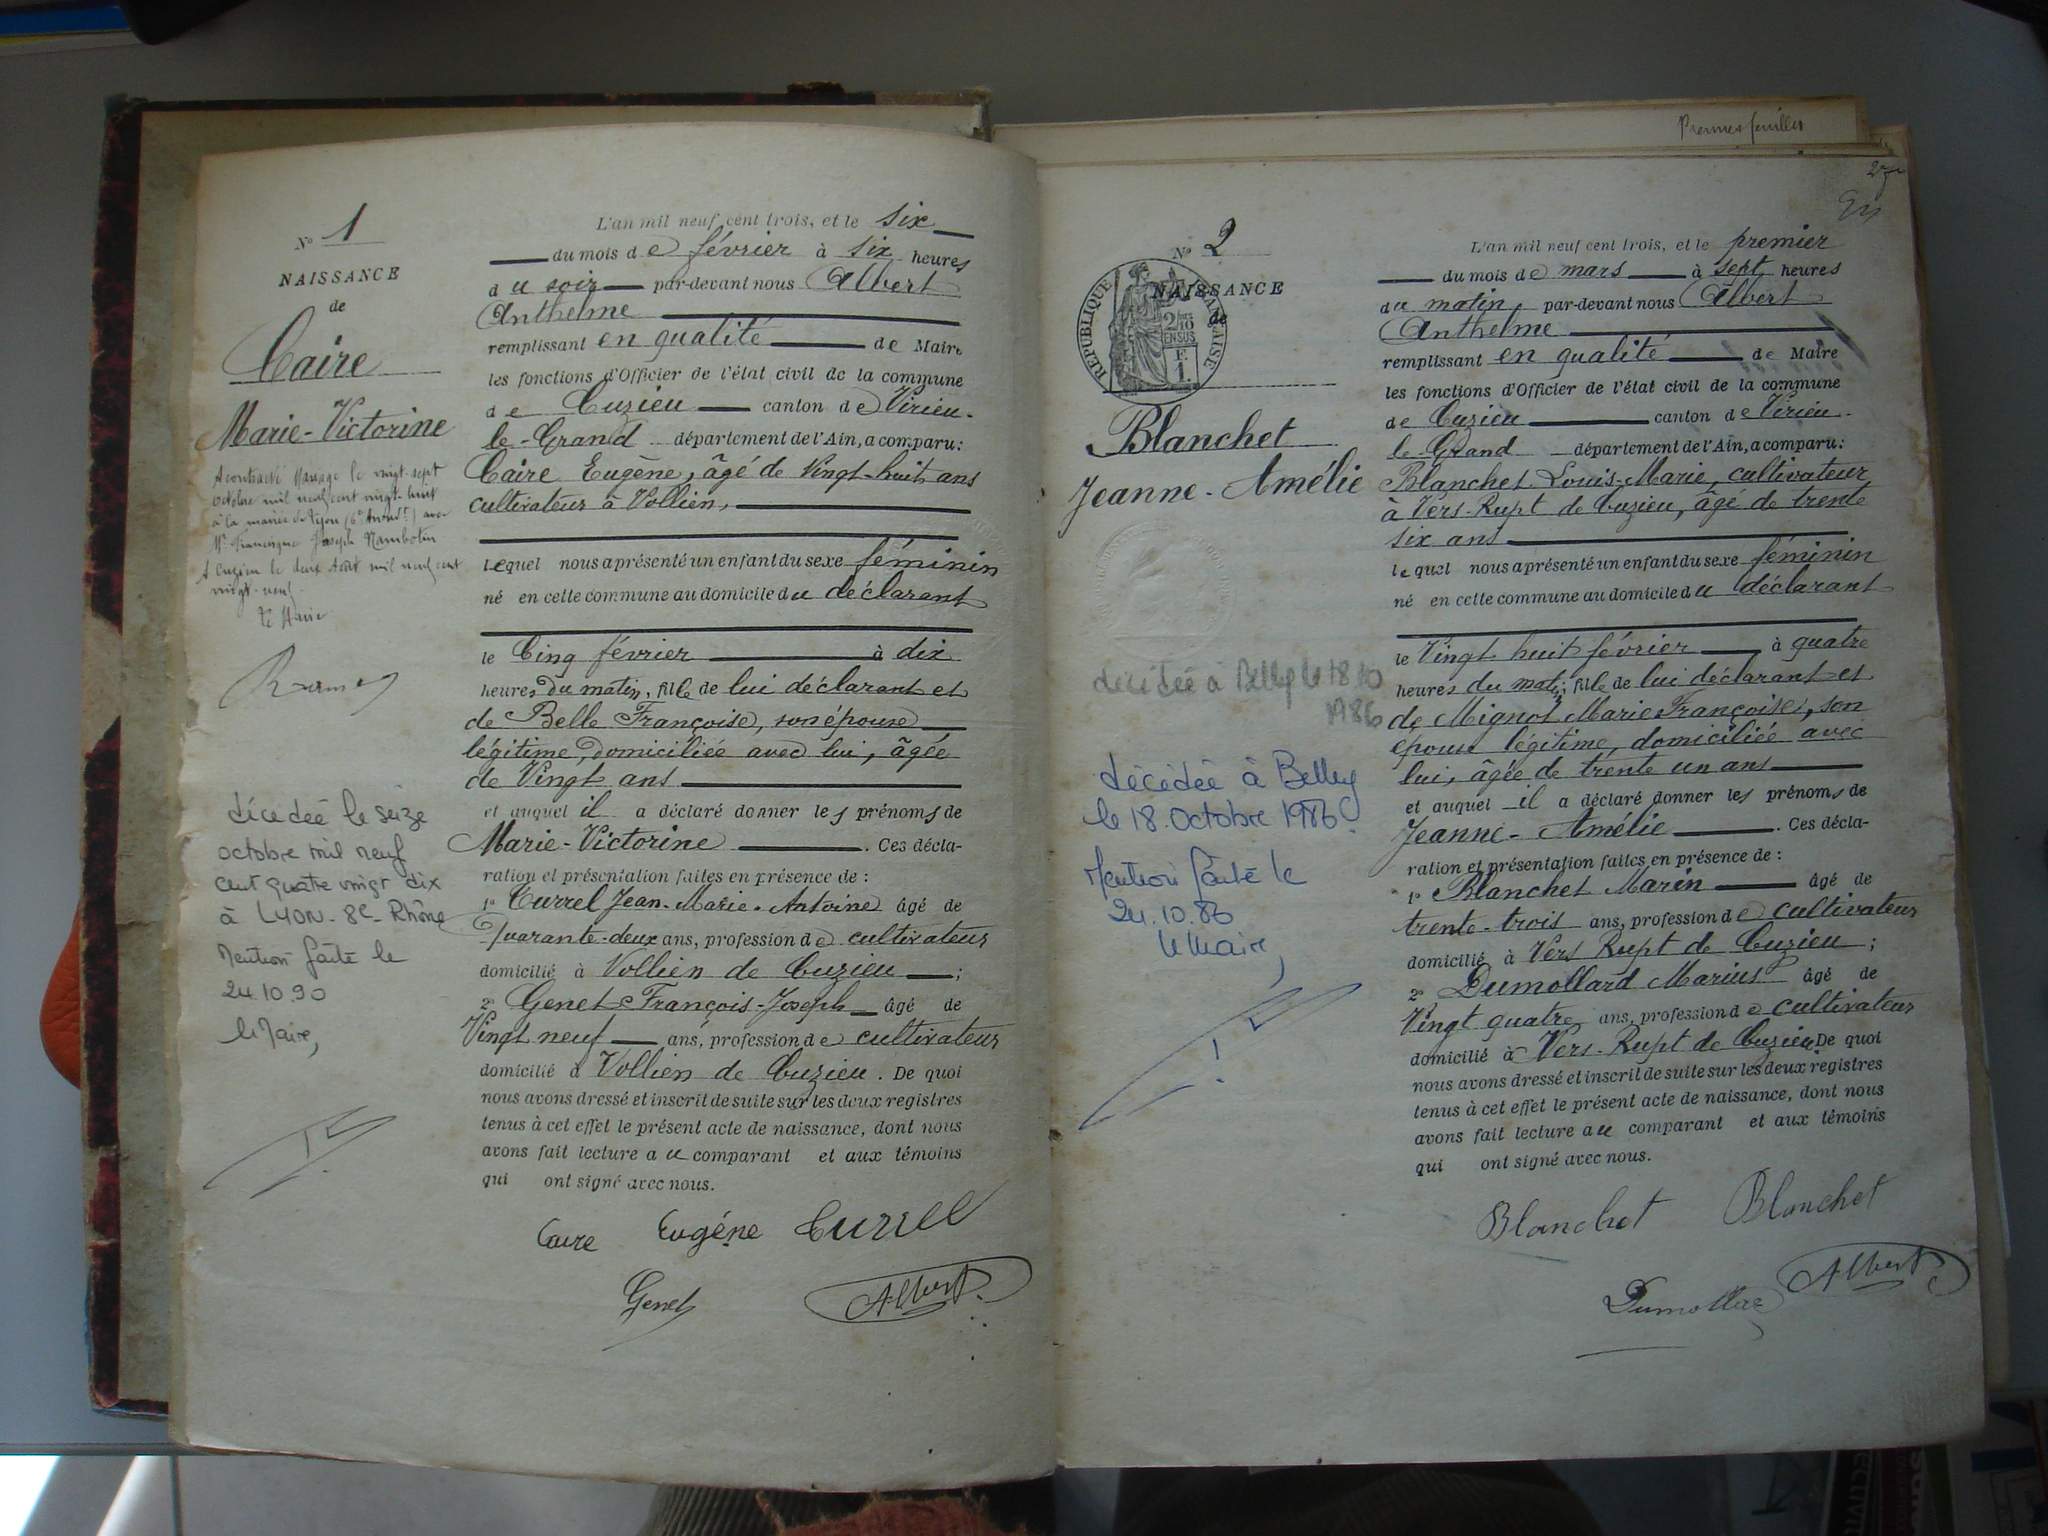 Nº 1
NAISSANCE
de
Caire
Marie-Victorine
A contracté mariage le vingt-sept
octobre mil neuf cent vingt-huit
à la mairie de Lyon (6e Arrondt) avec
Mr Joseph
A Cuzieu le deux Août mil neuf cent
vingt-neuf
Le Maire
décédée le seize
octobre mil neuf
cent quatre vingt dix
à LYON-8e-Rhône
Mention faite le
24.10.90
le Maire,
L'an mil neuf cent trois, et le six
du mois de février à six heures
du soir par-devant nous Albert
Anthelme
remplissant en qualité de Maire
les fonctions d'Officier de l'état civil de la commune
de Cuzieu canton de Virieu-
le-Grand département de l'Ain, a comparu:
Caire Eugène, âgé de Vingt-huit ans
cultivateur à Vollien,
Lequel nous a présenté un enfant du sexe féminin
né en cette commune au domicile du déclarant
le Cinq février à dix
heures du matin, fille de lui déclarant et
de Belle Françoise, son épouse
légitime, domiciliée avec lui, âgée
de Vingt ans
et auquel il a déclaré donner les prénoms de
Marie-Victorine. Ces décla-
ration et présentation faites en présence de :
1º Currel Jean-Marie-Antoine âgé de
Quarante-deux ans, profession de cultivateur
domicilié à Vollien de Cuzieu ;
2º Genet François-Joseph âgé de
Vingt neuf ans, profession de cultivateur
domicilié à Vollien de Cuzieu. De quoi
nous avons dressé et inscrit de suite sur les deux registres
tenus à cet effet le présent acte de naissance, dont nous
avons fait lecture au comparant et aux témoins
qui ont signé avec nous.
Caire Eugéne Currel
Genet Albert
Premier feuillet
Nº 2
NAISSANCE
de
RÉPUBLIQUE FRANÇAISE
2/10
EN SUS
F.
1.
Blanchet
Jeanne-Amélie
décédée à Belley le 18 10
1986
décédée à Belley
le 18 Octobre 1986.
Mention faite le
24.10.86
le Maire,
L'an mil neuf cent trois, et le premier
du mois de mars à sept heures
du matin par-devant nous Albert
Anthelme
remplissant en qualité de Maire
les fonctions d'Officier de l'état civil de la commune
de Cuzieu canton de Virieu-
le Grand département de l'Ain, a comparu:
Blanchet Louis-Marie, cultivateur
à Vers-Rupt de Cuzieu, âgé de trente
six ans
lequel nous a présenté un enfant du sexe féminin
né en cette commune au domicile du déclarant
le Vingt huit février à quatre
heures du matin, fille de lui déclarant et
de Mignot Marie Françoise, son
épouse légitime, domiciliée avec
lui, âgée de trente un ans
et auquel il a déclaré donner les prénoms de
Jeanne-Amélie. Ces décla-
ration et présentation faites en présence de :
1º Blanchet Marin âgé de
trente-trois ans, profession de cultivateur
domicilié à Vers Rupt de Cuzieu ;
2º Dumollard Marius âgé de
Vingt quatre ans, profession de cultivateur
domicilié à Vers-Rupt de Cuzieu. De quoi
nous avons dressé et inscrit de suite sur les deux registres
tenus à cet effet le présent acte de naissance, dont nous
avons fait lecture au comparant et aux témoins
qui ont signé avec nous.
Blanchet Blanchet
Albert